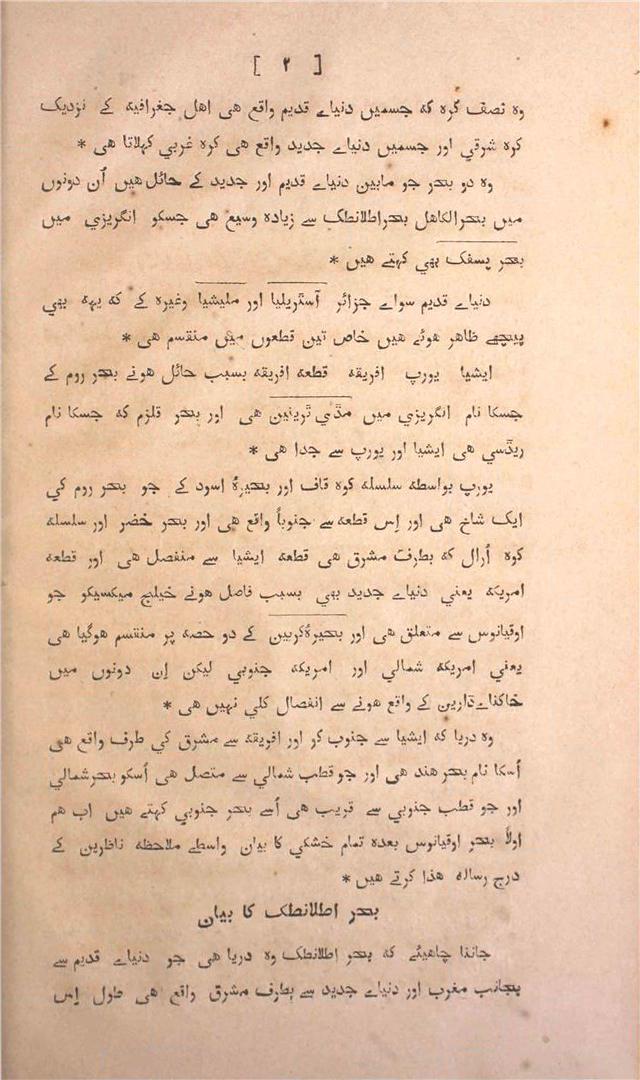 [ ٢ ]
وہ نصف کرہ کہ جسمیں دنیاے قدیم واقع ھی اھل جغرافیہ کے نزدیک
کرہ شرقي اور جسمیں دنیاے جدید واقع ھی کرہ غربي کہلاتا ھی *
وہ دو بحر جو مابین دنیاے قدیم اور جدید کے حائل ھیں اُن دونوں
میں بحرالکاھل بحراطلانطک سے زیادہ وسیع ھی جسکو انگریزي میں
بحر پسفک بھي کہتے ھیں *
دنیاے قدیم سواے جزائر آسٹریلیا اور ملیشیا وغیرہ کے کہ یہہ بھي
پیچھے ظاھر ھوئے ھیں خاص تین قطعوں میں منقسم ھی *
ایشیا یورپ افریقہ قطعہ افریقہ بسبب حائل ھونے بحر روم کے
جسکا نام انگریزي میں مڈي ٹرینین ھی اور بحر قلزم کہ جسکا نام
ریڈسي ھی ایشیا اور یورپ سے جدا ھی *
یورپ بواسطہ سلسلہ کوہ قاف اور بحیرۂ اسود کے جو بحر روم کي
ایک شاخ ھی اور اِس قطعہ سے جنوباً واقع ھی اور بحر خضر اور سلسلہ
کوہ اُرال کہ بطرف مشرق ھی قطعہ ایشیا سے منفصل ھی اور قطعہ
امریکہ یعني دنیاے جدید بھي بسبب فاصل ھونے خیلیج میکسیکو جو
اوقیانوس سے متعلق ھی اور بحیرۂکربین کے دو حصہ پر منقسم ھوگیا ھی
یعني امریکہ شمالي اور امریکہ جنوبي لیکن اِن دونوں میں
خاکناےڈارین کے واقع ھونے سے انفصال کلي نہیں ھی *
وہ دریا کہ ایشیا سے جنوب کو اور افریقہ سے مشرق کي طرف واقع ھی
اُسکا نام بحر ھند ھی اور جو قطب شمالي سے متصل ھی اُسکو بحرشمالي
اور جو قطب جنوبي سے قریب ھی اُسے بحر جنوبي کہتے ھیں اب ھم
اولاً بحر اوقیانوس بعدہ تمام خشکي کا بیان واسطے ملاحظہ ناظرین کے
درج رسالہ ھذا کرتے ھیں *
بحر اطلانطک کا بیان
جاننا چاھیئے کہ بحر اطلانطک وہ دریا ھی جو دنیاے قدیم سے
بجانب مغرب اور دنیاے جدید سے بطرف مشرق واقع ھی طول اِس